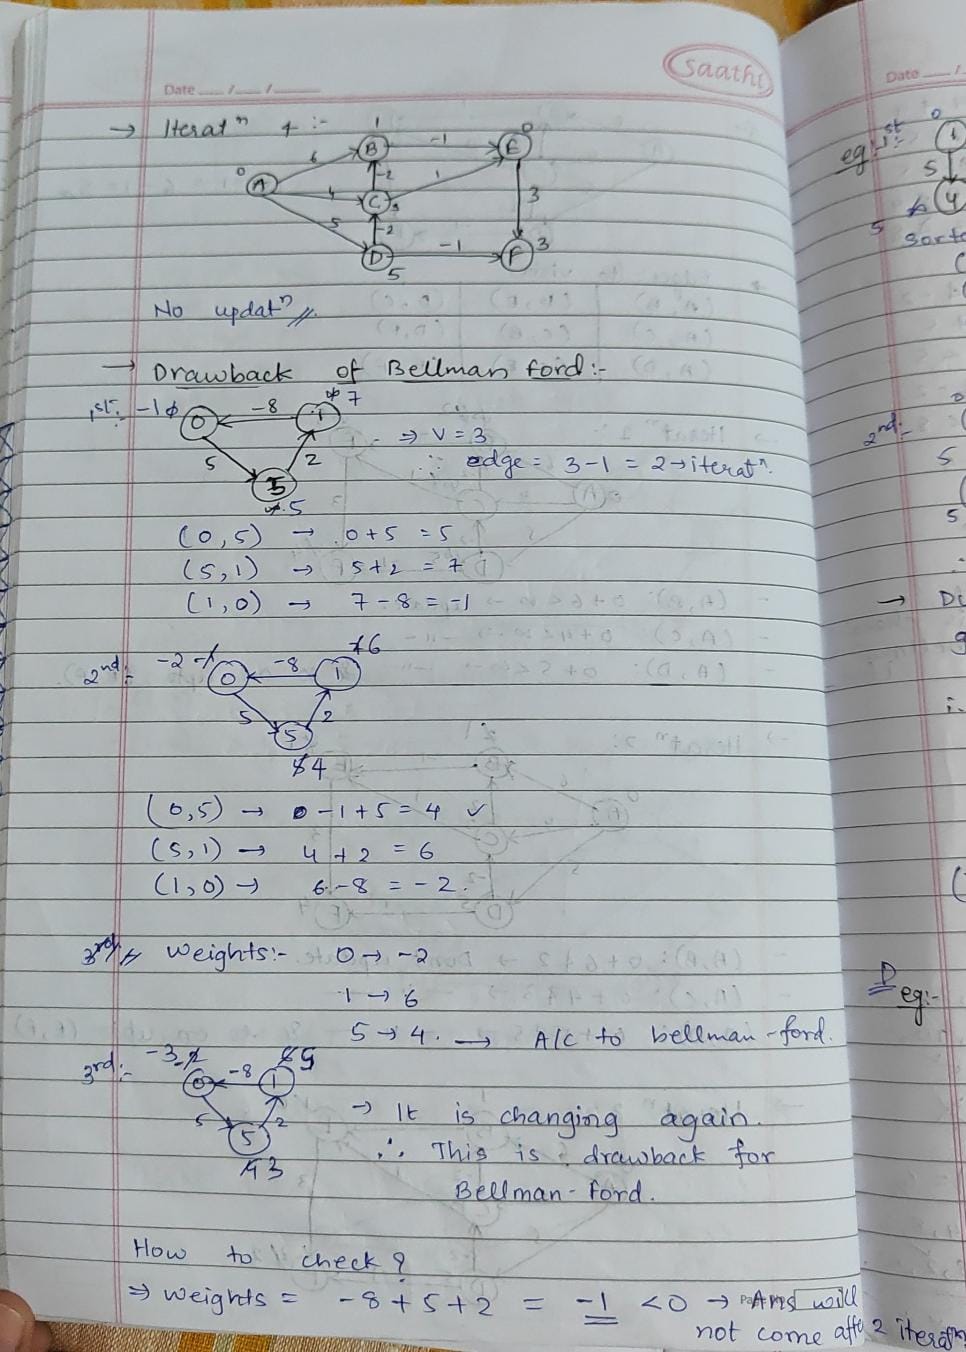 Saathi
Date __/__/____
→ Iteratⁿ 4 :-
0 A 6 B 1 -1 E 0
4 C 3 -2 1 3
5 D 5 -2 -1 F 3
No updatⁿ //.
→ Drawback of Bellman ford :-
1st :- -1 0 0 -8 1 ∞ 7
5 2 ⇒ V = 3
∴ edge = 3-1 = 2 → iteratⁿ.
5
∞ 5
(0,5) → 0+5 = 5
(5,1) → 5+2 = 7
(1,0) → 7-8 = -1
2nd :- -2 -1 0 -8 1 7 6
5 2
5
5 4
(0,5) → -1+5 = 4 ✓
(5,1) → 4+2 = 6
(1,0) → 6-8 = -2.
3rd // weights :- 0 → -2
1 → 6
5 → 4. → A/C to bellman-ford.
3rd :- -3 -2 0 -8 1 6 5
5 2 → It is changing again.
5 ∴ This is drawback for
4 3 Bellman-ford.
How to check ?
⇒ weights = -8+5+2 = -1 <0 → Ans will
not come after 2 iteratⁿ
Date __/
eg:- 1st 0
1
5
4
5
Sorte
2nd :-
5
5
→ Di
g
D eg:-